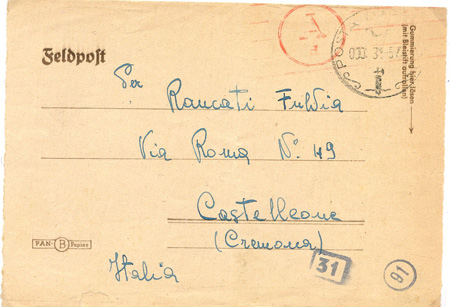 Feldpost
Per Rancati Fulvia
Via Roma N° 49
Castelleone
(Cremona)
Italia
PAN-B Papier
31
91
Gummierung hier lösen
(mit Bleistift aufrollen)